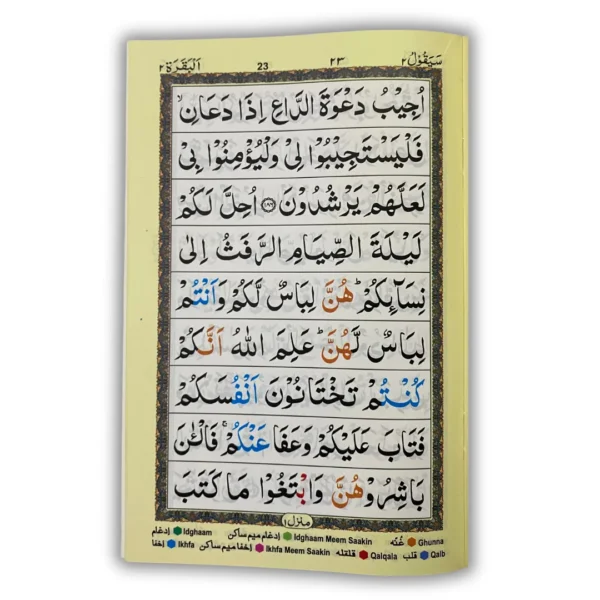 سَيَقُوْلُ ٢ ٢٣ 23 اَلْبَقَرَة ٢
اُجِيْبُ دَعْوَةَ الدَّاعِ اِذَا دَعَانِ ۙ
فَلْيَسْتَجِيْبُوْا لِىْ وَلْيُؤْمِنُوْا بِىْ
لَعَلَّهُمْ يَرْشُدُوْنَ ﴿١٨٦﴾ اُحِلَّ لَكُمْ
لَيْلَةَ الصِّيَامِ الرَّفَثُ اِلٰى
نِسَآئِكُمْ ؕ هُنَّ لِبَاسٌ لَّكُمْ وَاَنْتُمْ
لِبَاسٌ لَّهُنَّ ؕ عَلِمَ اللّٰهُ اَنَّكُمْ
كُنْتُمْ تَخْتَانُوْنَ اَنْفُسَكُمْ
فَتَابَ عَلَيْكُمْ وَعَفَا عَنْكُمْ ۚ فَالْـٰٔنَ
بَاشِرُوْهُنَّ وَابْتَغُوْا مَا كَتَبَ
منزل ١
إدغام Idghaam إدغام ميم ساكن Idghaam Meem Saakin غُنّه Ghunna
إخفا Ikhfa إخفا ميم ساكن Ikhfa Meem Saakin قلقله Qalqala قلب Qalb